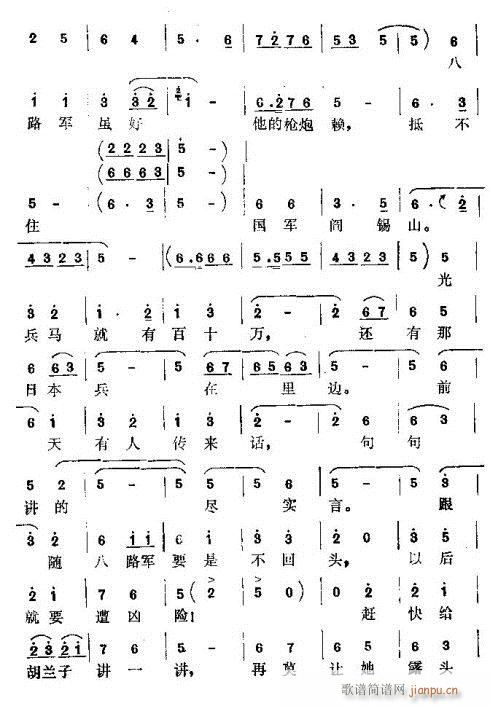 2 5 | 6 4 | 5 · 6 | 7276 | 53 5 | 5) 6
八
1 1 | 3 32 | 1 - | 6·276 | 5 - | 6 · 3
路军 虽好 他的枪炮 赖, 抵不
(2223 | 5 -)
(6663 | 5 -)
5 - | (6·3 | 5 -) | 6 6 | 3· 5 | 6· 2
住 国军 阎锡山。
4323 | 5 - | (6·666 | 5·555 | 4323 | 5) 5
光
3 2 | 1 · 2 | 1 3 | 2 - | 2 76 | 6 5
兵马 就有百十万, 还有那
6 63 | 5 - | 5 67 | 6563 | 5 - | 5 5
日本兵 在里边。 前
6 1 | 3 2 | 1 1 | 2 - | 2 6 | 6 3
天有人传来话, 句句
5 2 | 5 - | 5 5 | 5 6 | 5 - | 5 3
讲的 尽实言。 跟
3 2 | 6 11 | 2 1 | 3 3 | 2 0 | 3 5
随八路军要是不回头, 以后
2 1 | 7 6 | 5 (2 | 5 0) | 0 2 | 7 6
就要遭凶险! 赶快给
2321 | 7 6 | 5 - | 6 6 | 1 2 | 7 6
胡兰子讲一讲, 再莫让她露头
歌谱简谱网
jianpu.cn